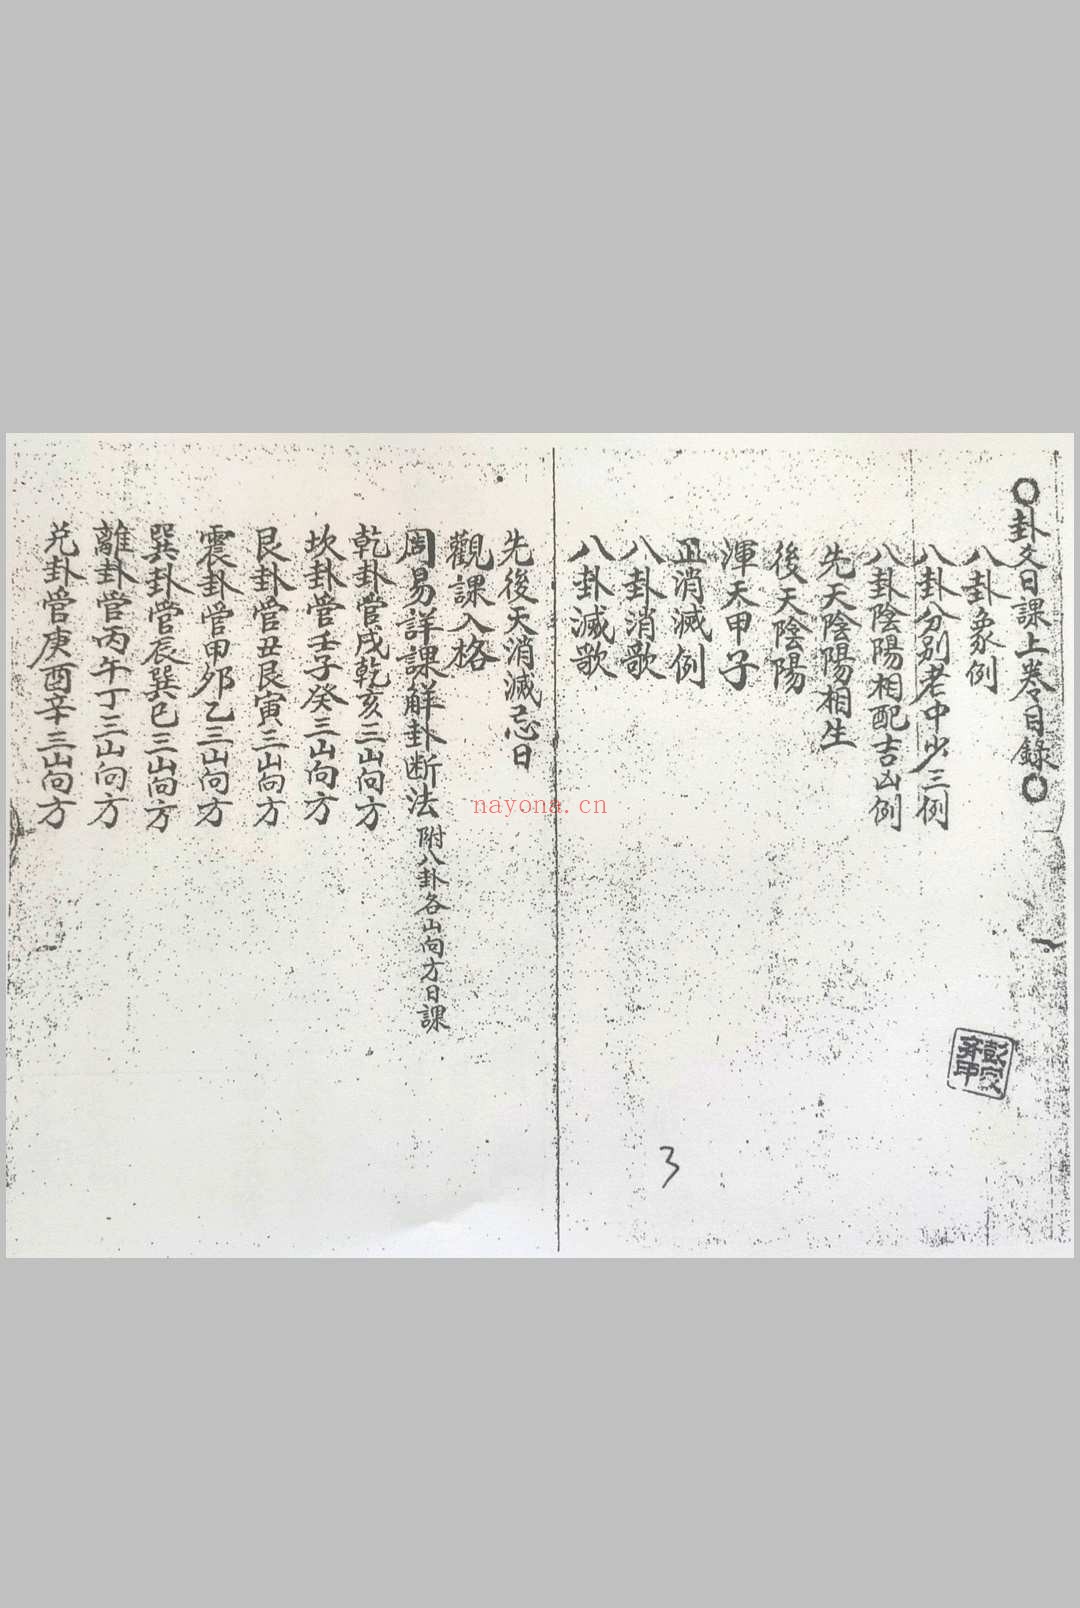 ○卦爻日課上卷目錄○
八卦象例
八卦分别老中少三例
八卦陰陽相配吉凶例
先天陰陽相生
後天陰陽
渾天甲子
正消滅例
八卦消歌
八卦滅歌
先後天消滅忌日
觀課入格
周易詳課解卦断法 附八卦各山向方日課
乾卦管戌乾亥三山向方
坎卦管壬子癸三山向方
艮卦管丑艮寅三山向方
震卦管甲卯乙三山向方
巽卦管辰巽巳三山向方
離卦管丙午丁三山向方
兑卦管庚酉辛三山向方
3
nayona.cn